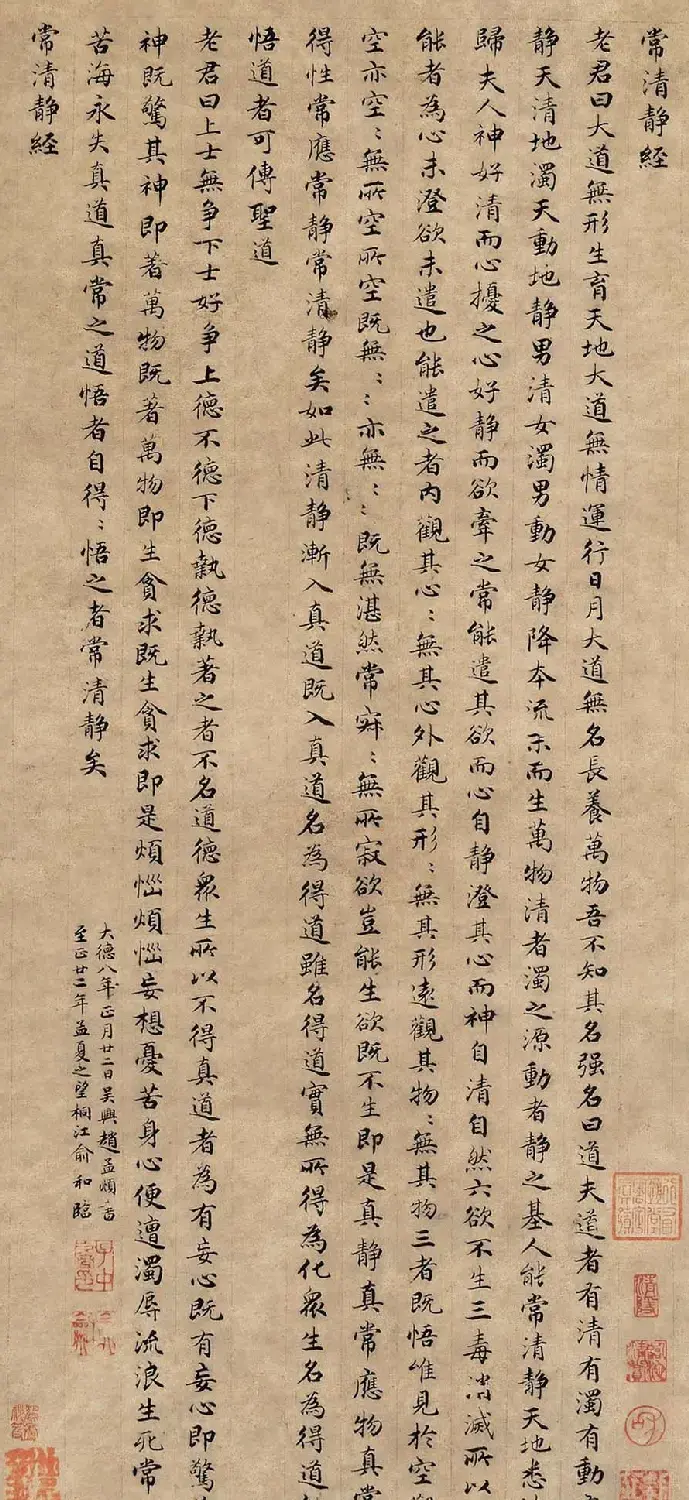 常清静経
老君曰大道無形生育天地大道無情運行日月大道無名長養萬物吾不知其名强名曰道夫道者有清有濁有動
静天清地濁天動地静男清女濁男動女静降本流末而生萬物清者濁之源動者静之基人能常清静天地悉
歸夫人神好清而心擾之心好静而欲牽之常能遣其欲而心自静澄其心而神自清自然六欲不生三毒消滅所以
能者為心未澄欲未遣也能遣之者内觀其心〻無其心外觀其形〻無其形遠觀其物〻無其物三者既悟唯見於空
空亦空〻無所空所空既無〻〻亦無〻〻既無湛然常寂〻無所寂欲豈能生欲既不生即是真静真常應物真常
得性常應常静常清静矣如此清静漸入真道既入真道名為得道雖名得道實無所得為化衆生名為得道
悟道者可傳聖道
老君曰上士無争下士好争上德不德下德執德執著之者不名道德衆生所以不得真道者為有妄心既有妄心即驚
神既驚其神即著萬物既著萬物即生貪求既生貪求即是煩惱煩惱妄想憂苦身心便遭濁辱流浪生死常
苦海永失真道真常之道悟者自得〻悟之者常清静矣
大德八年正月廿二日吴興趙孟頫書
至正廿二年孟夏之望桐江俞和臨
子中
常清静経